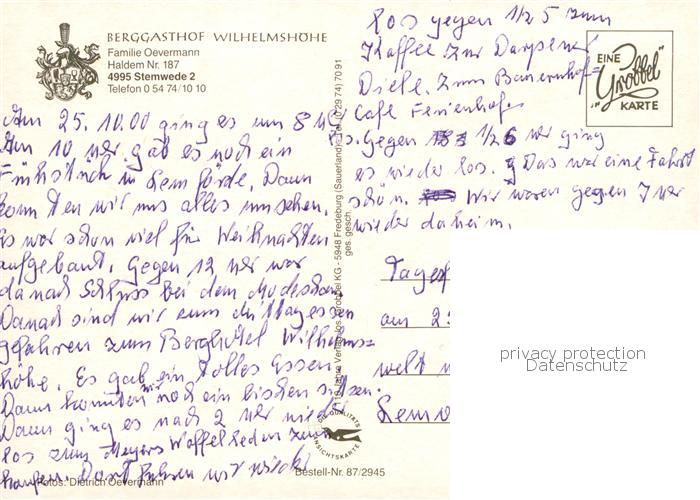 BERGGASTHOF WILHELMSHÖHE
Familie Oevermann
Haldem Nr. 187
4995 Stemwede 2
Telefon 0 54 74/10 10
Am 25. 10.00 ging es um 8 Uhr los.
Um 10 Uhr gab es noch ein
Frühstück in Lemförde. Dann
konnten wir uns alles ansehen.
Es war schon viel für Weihnachten
aufgebaut. Gegen 12 Uhr war
danach Schluss bei dem Modeschau
Danach sind wir zum Mittagessen
gefahren zum Berghotel Wilhelms=
höhe. Es gab ein tolles Essen.
Dann konnten wir noch ein bischen sitzen.
Dann ging es nach 2 Uhr wieder
los zum Meyers Waffelladen zum
kaufen. Dort fuhren wir wieder
Fotos: Dietrich Oevermann
los gegen 1/2 5 zum
Kaffee zur Darpener
Diele. Zum Bauernhof=
Cafe Ferienhof.
Gegen 1/2 6 Uhr ging
es wieder los. Das war eine Fahrt
schön. Wir waren gegen 7 Uhr
wieder daheim.
EINE
"Grobbel"
KARTE
Verlag Grobbel KG - 5948 Fredeburg (Sauerland) Tel. (0 29 74) 70 91
ges. gesch.
DIE QUALITÄTS
ANSICHTSKARTE
Bestell-Nr. 87/2945
am
welt
privacy protection
Datenschutz